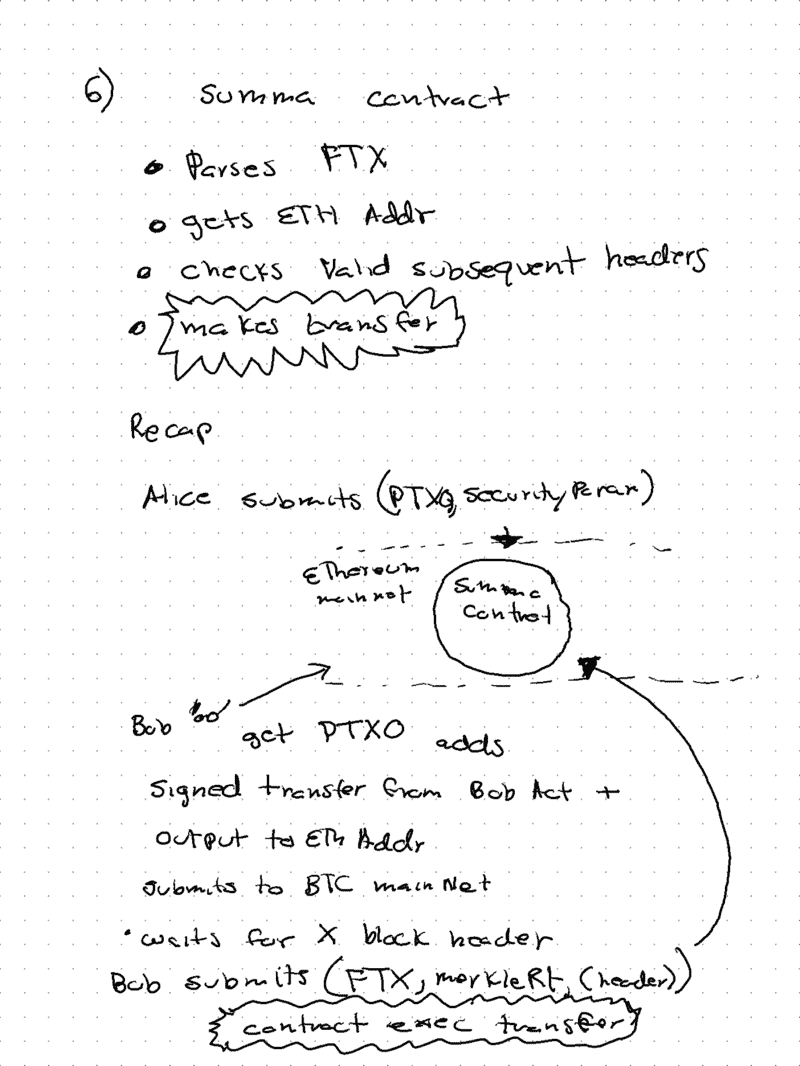 6) Summa contract
• Parses FTX
• gets ETH Addr
• checks Valid subsequent headers
• makes transfer
Recap
Alice submits (PTXO, security Param)
Ethereum
mainnet
Summa
Contract
Bob
get PTXO adds
signed transfer from Bob Act +
output to Eth Addr
submits to BTC mainNet
• waits for X block header
Bob submits (FTX, merkleRt, (header))
contract exec transfer